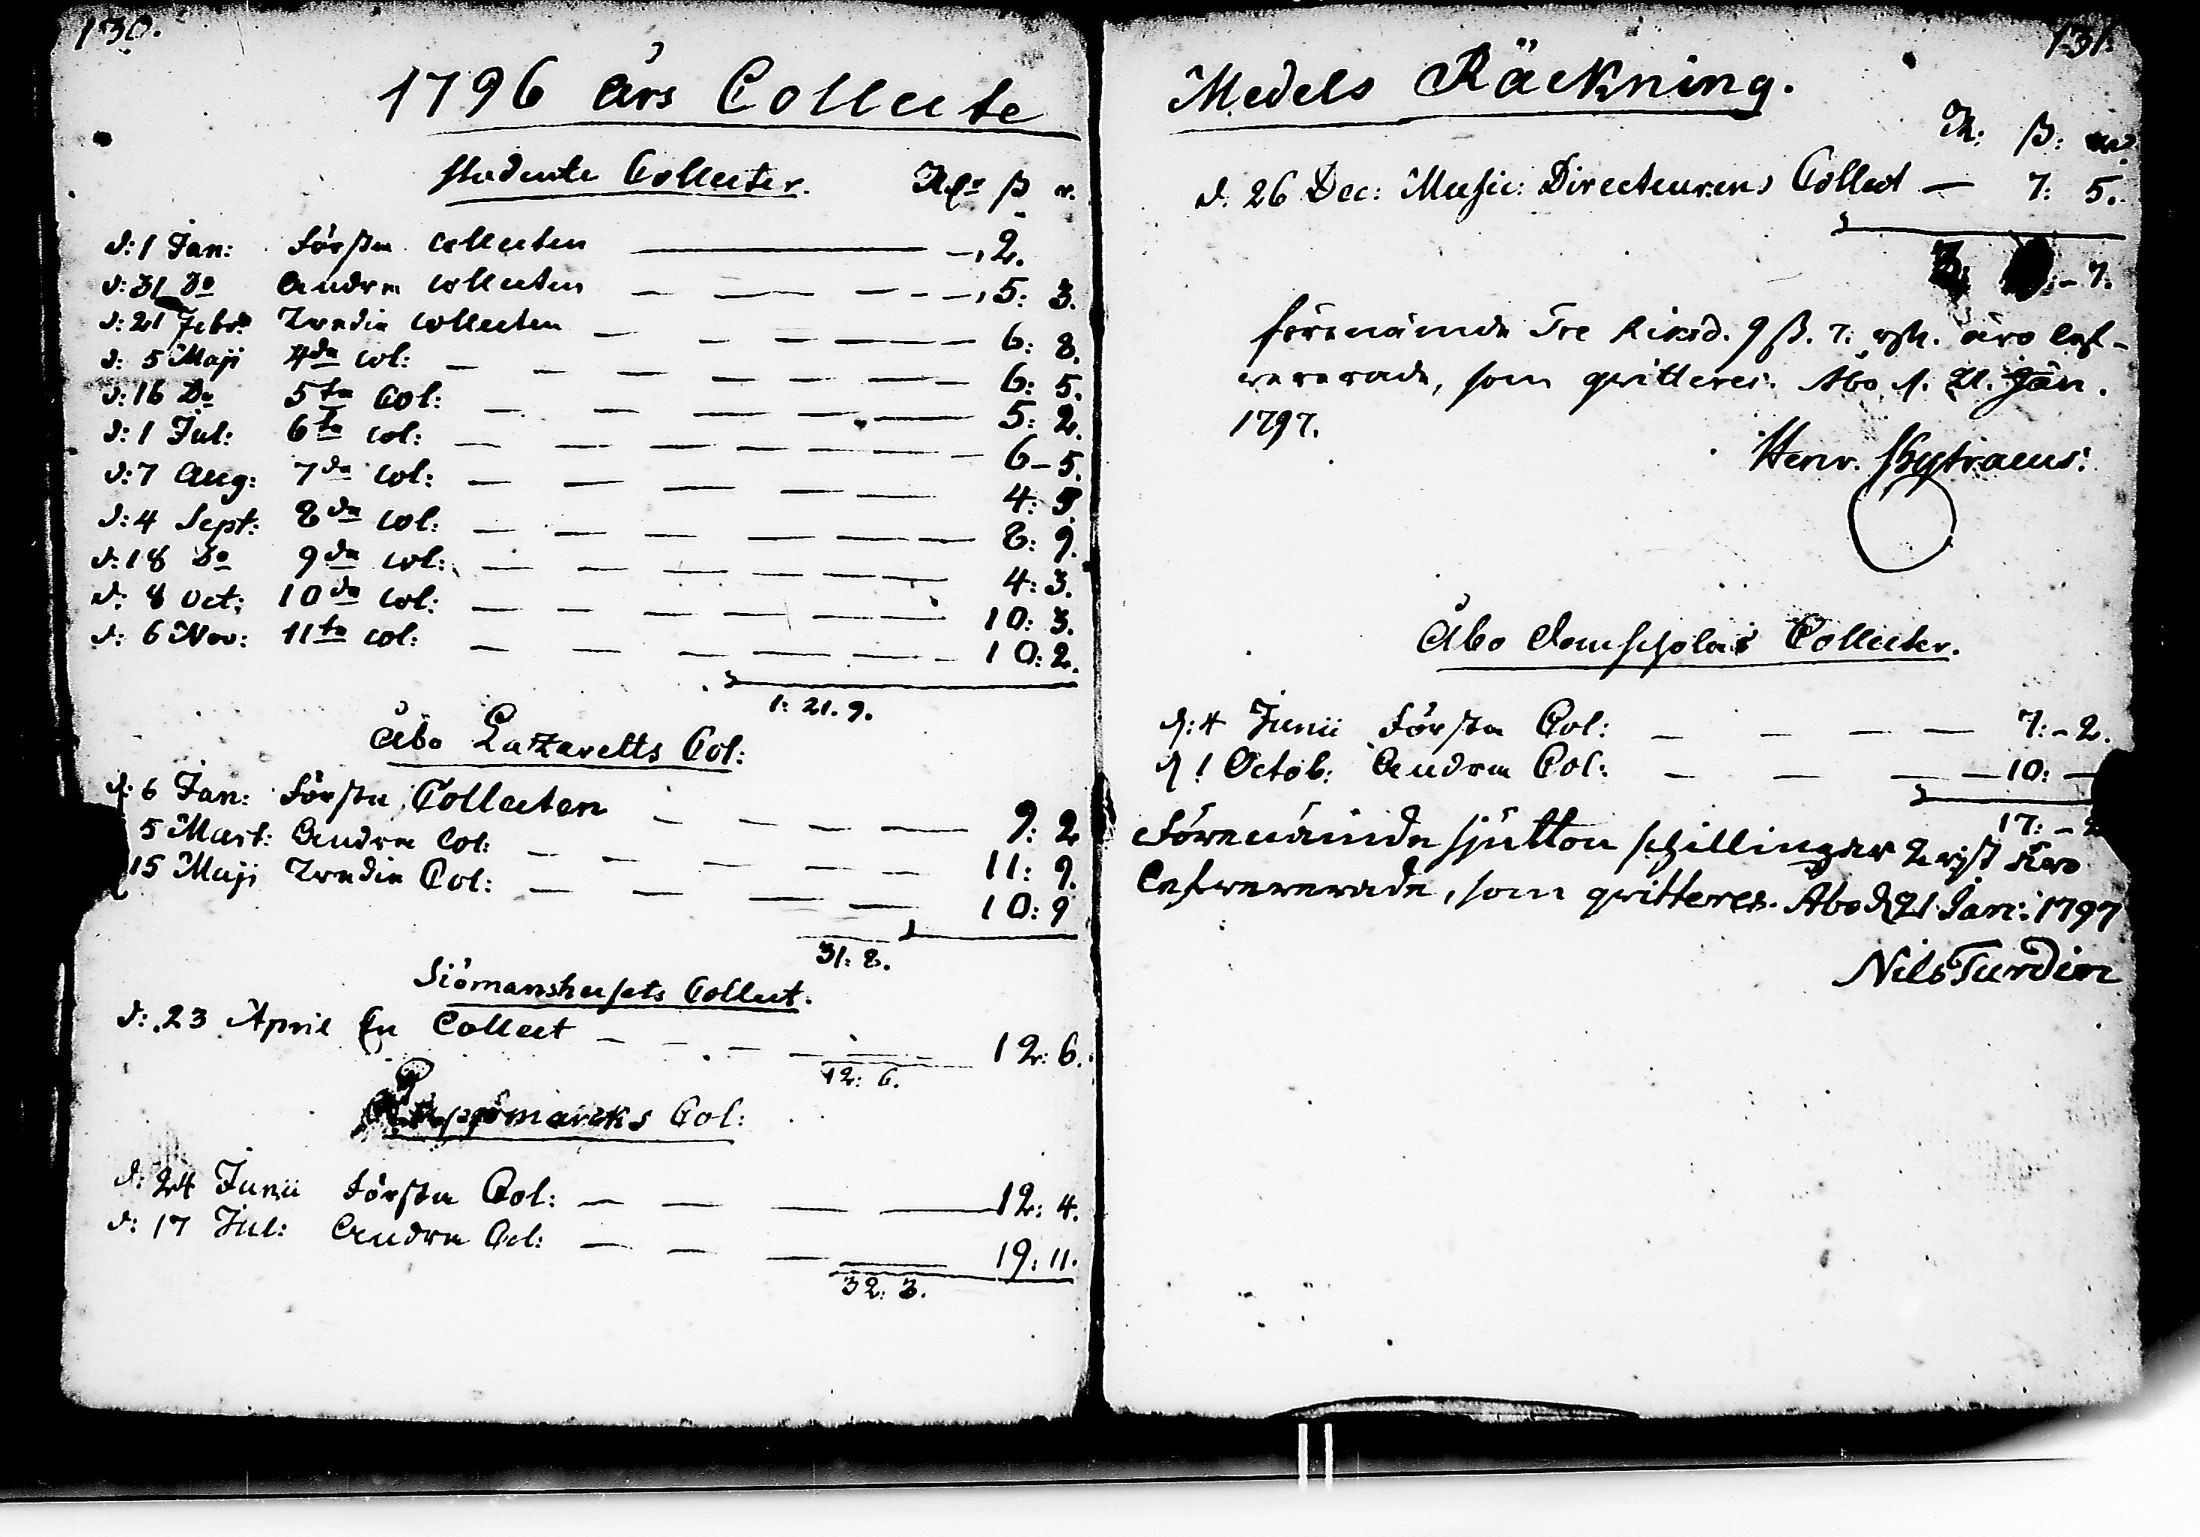 130.
1796 års Collecte
Studente Collecter. Rdr ß r.
d: 1 Jan: Första Collecten —, 2.
d: 31 Do Andra Collecten —, 5: 3.
d: 21 Febr: Tredie Collecten 6: 8.
d: 5 Maji 4de Col: 6: 5.
d: 16 Do 5te Col: 5: 2.
d: 1 Jul: 6te Col: 6 – 5.
d: 7 Aug: 7de Col: 4: 5.
d: 4 Sept: 8de Col: 8: 9.
d: 18 Do 9de Col: 4: 3.
d: 8 Oct: 10de Col: 10: 3.
d: 6 Nov: 11te Col: 10: 2.
1: 21. 9.
Åbo Lazaretts Col:
d: 6 Jan: Första Collecten 9: 2
5 Mart: Andra Col: 11: 9.
15 Maji Tredie Col: 10: 9
31: 8.
Siömanshusets Collect.
d: 23 April En Collect 12: 6.
12: 6.
Col:
d: 24 Junii Första Col: 12: 4.
d: 17 Jul: Andra Col: 19: 11.
32: 3.
131.
Medels Räckning.
R: ß:
d. 26 Dec: Music: Directeurens Collect — 7: 5.
3: – 7.
förenämde Tre Riksd. 9 ß. 7. rst. äro lef-
vererade, som qvitteres. Åbo d. 21. Jan.
1797.
Henr.
Åbo Domscholas Collecter.
d: 4 Junii Första Col: 7: – 2.
d 1 Octob: Andra Col: 10: —
17: – 2
Förenämde sjutton schillingar 2 rst äro
lefvererade, som qvitteres. Åbo d 21 Jan: 1797
Nils Turdin